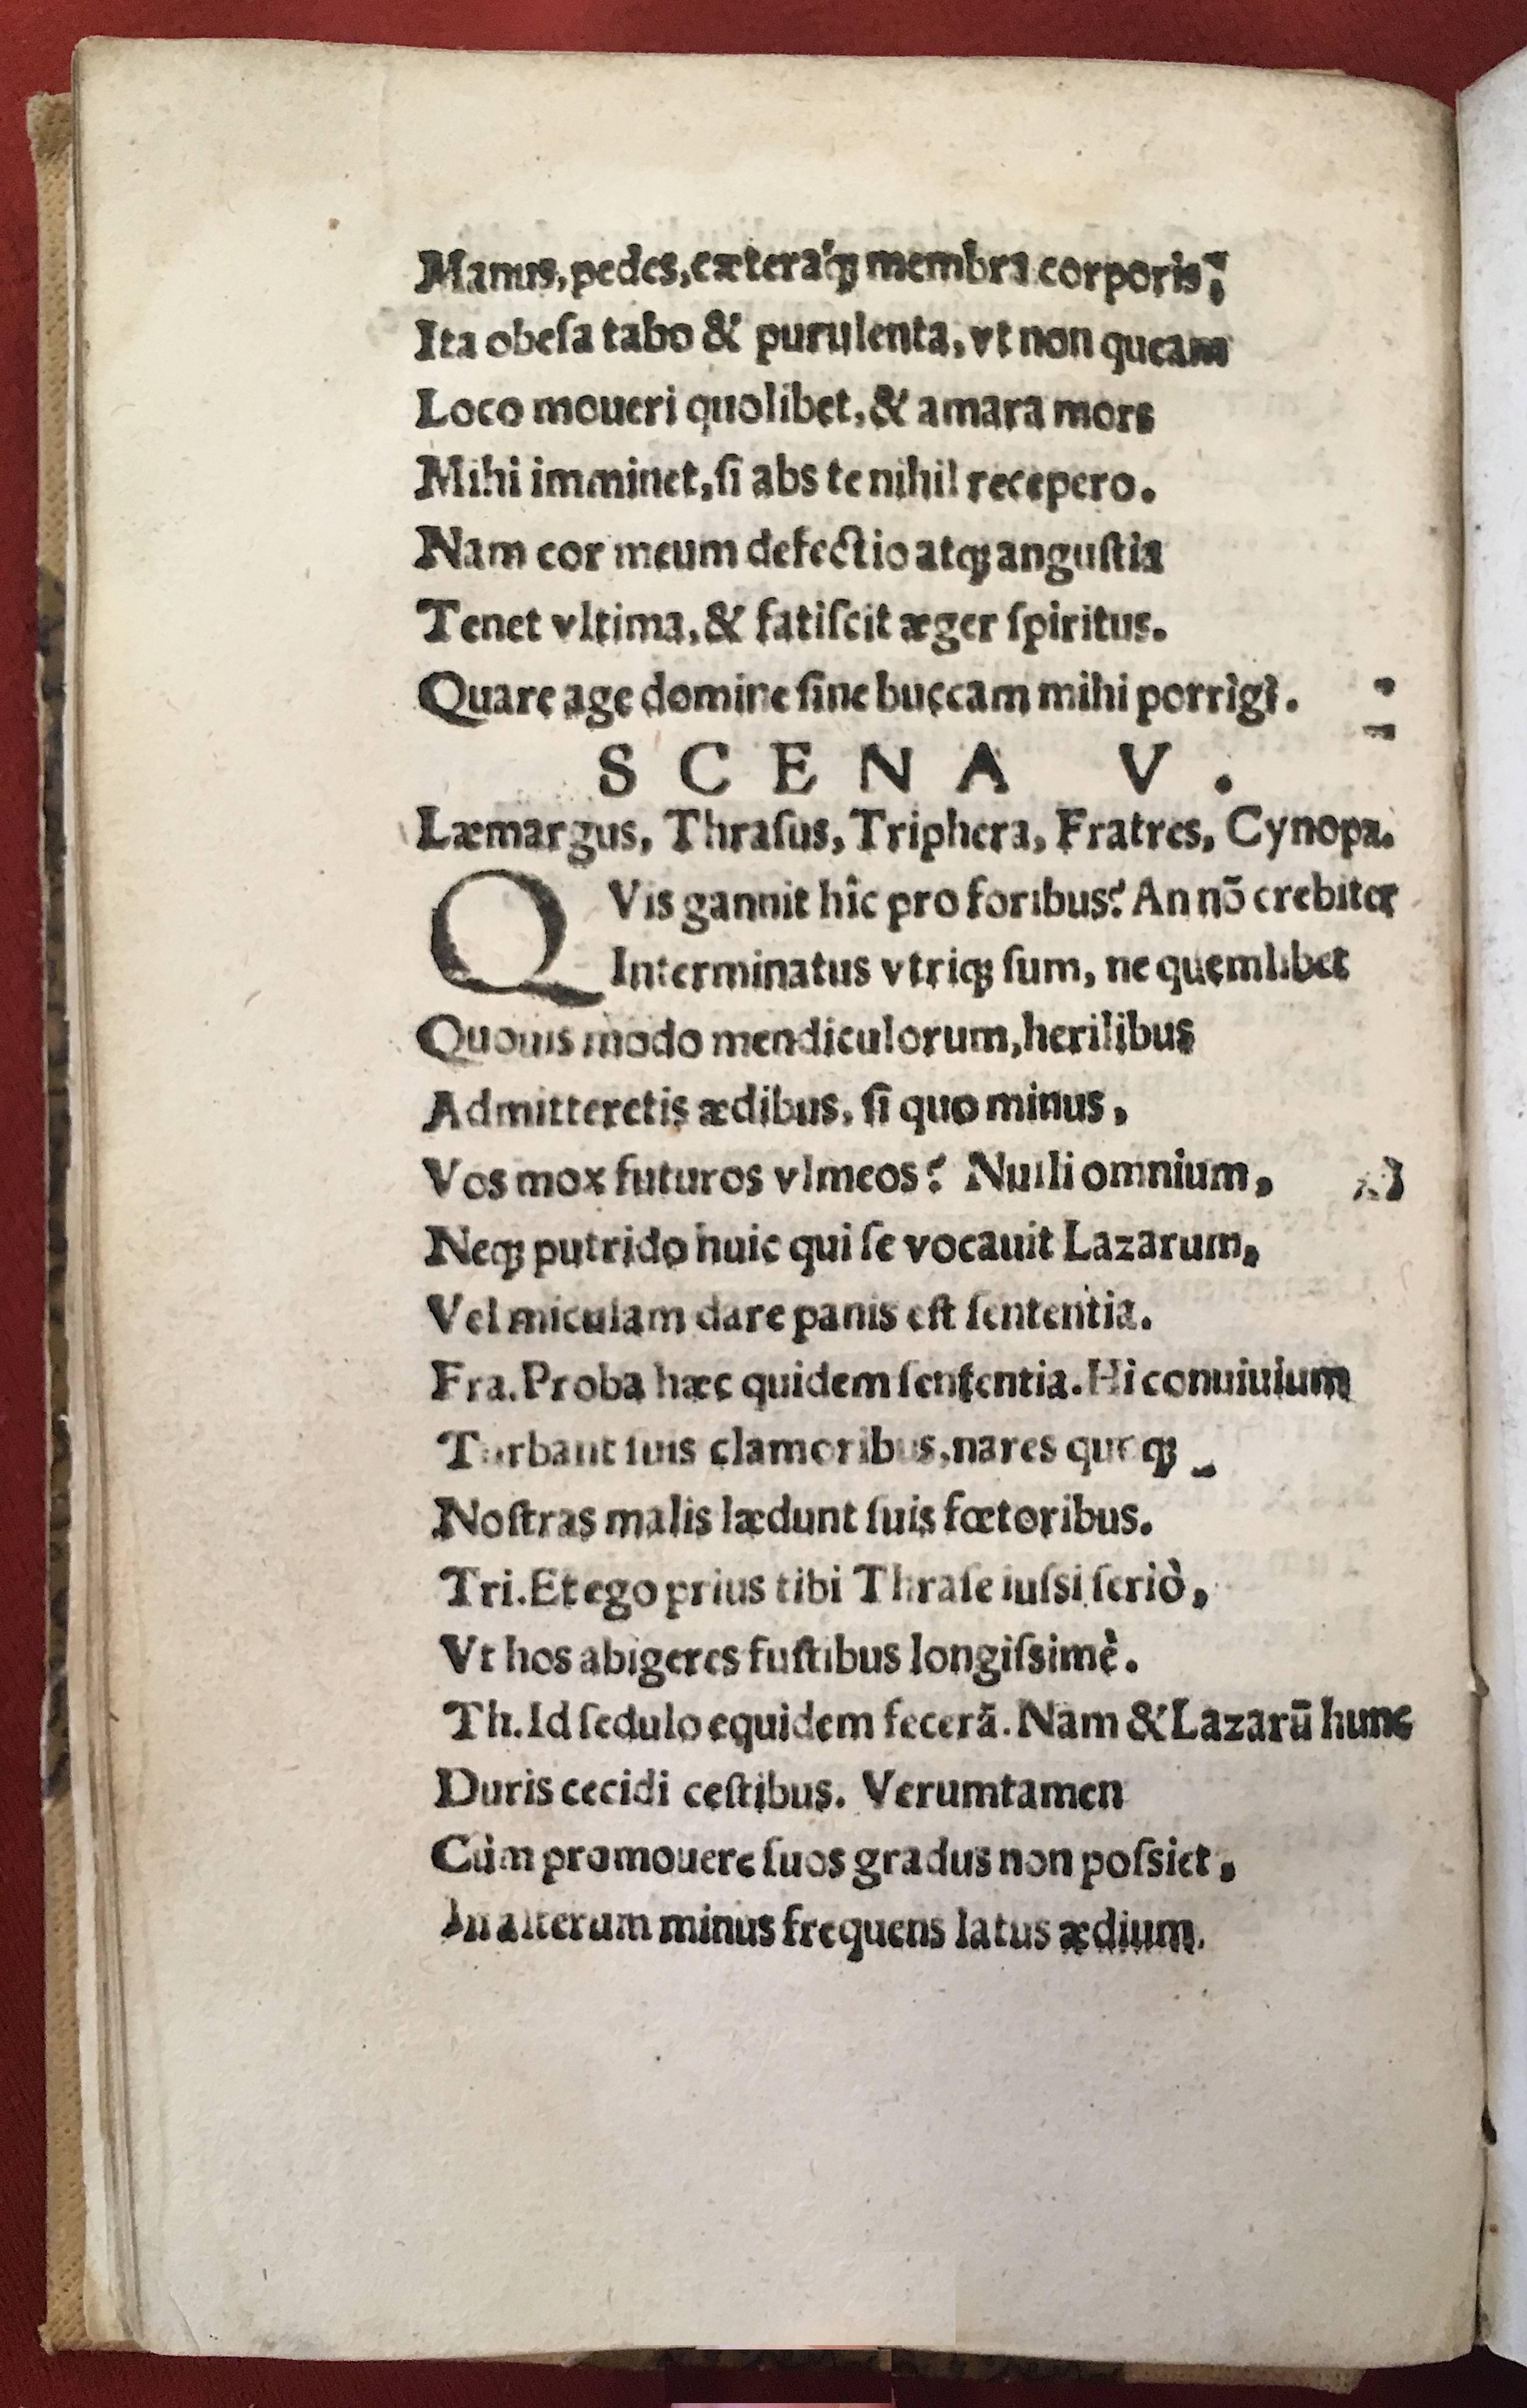 Manus, pedes, cæteraq́ꝫ membra corporis;
Ita obeſa tabo & purulenta, vt non queam
Loco moueri quolibet, & amara mors
Mihi imminet, ſi abs te nihil recepero.
Nam cor meum defectio atqꝫ anguſtia
Tenet vltima, & fatiſcit æger ſpiritus.
Quare age domine ſine buccam mihi porrìgì.
SCENA V.
Læmargus, Thraſus, Triphera, Fratres, Cynopa.
QVis gannit hîc pro foribus? An nō crebiter
Interminatus vtriqꝫ ſum, ne quemlibet
Quouis modo mendiculorum, herilibus
Admitteretis ædibus, ſi quo minus,
Vos mox futuros vlmeos? Nulli omnium,
Neqꝫ putrido huic qui ſe vocauit Lazarum,
Vel miculam dare panis eſt ſententia.
Fra. Proba hæc quidem ſententia. Hi conuiuium
Turbant ſuis clamoribus, nares quoqꝫ
Noſtras malis lædunt ſuis fœtoribus.
Tri. Et ego prius tibi Thraſe iuſsi ſeriò,
Vt hos abigeres fuſtibus longiſsimè.
Th. Id ſedulo equidem fecerā. Nam & Lazarū hunc
Duris cecidi ceſtibus. Verumtamen
Cùm promouere ſuos gradus non poſsiet,
In alterum minus frequens latus ædium.